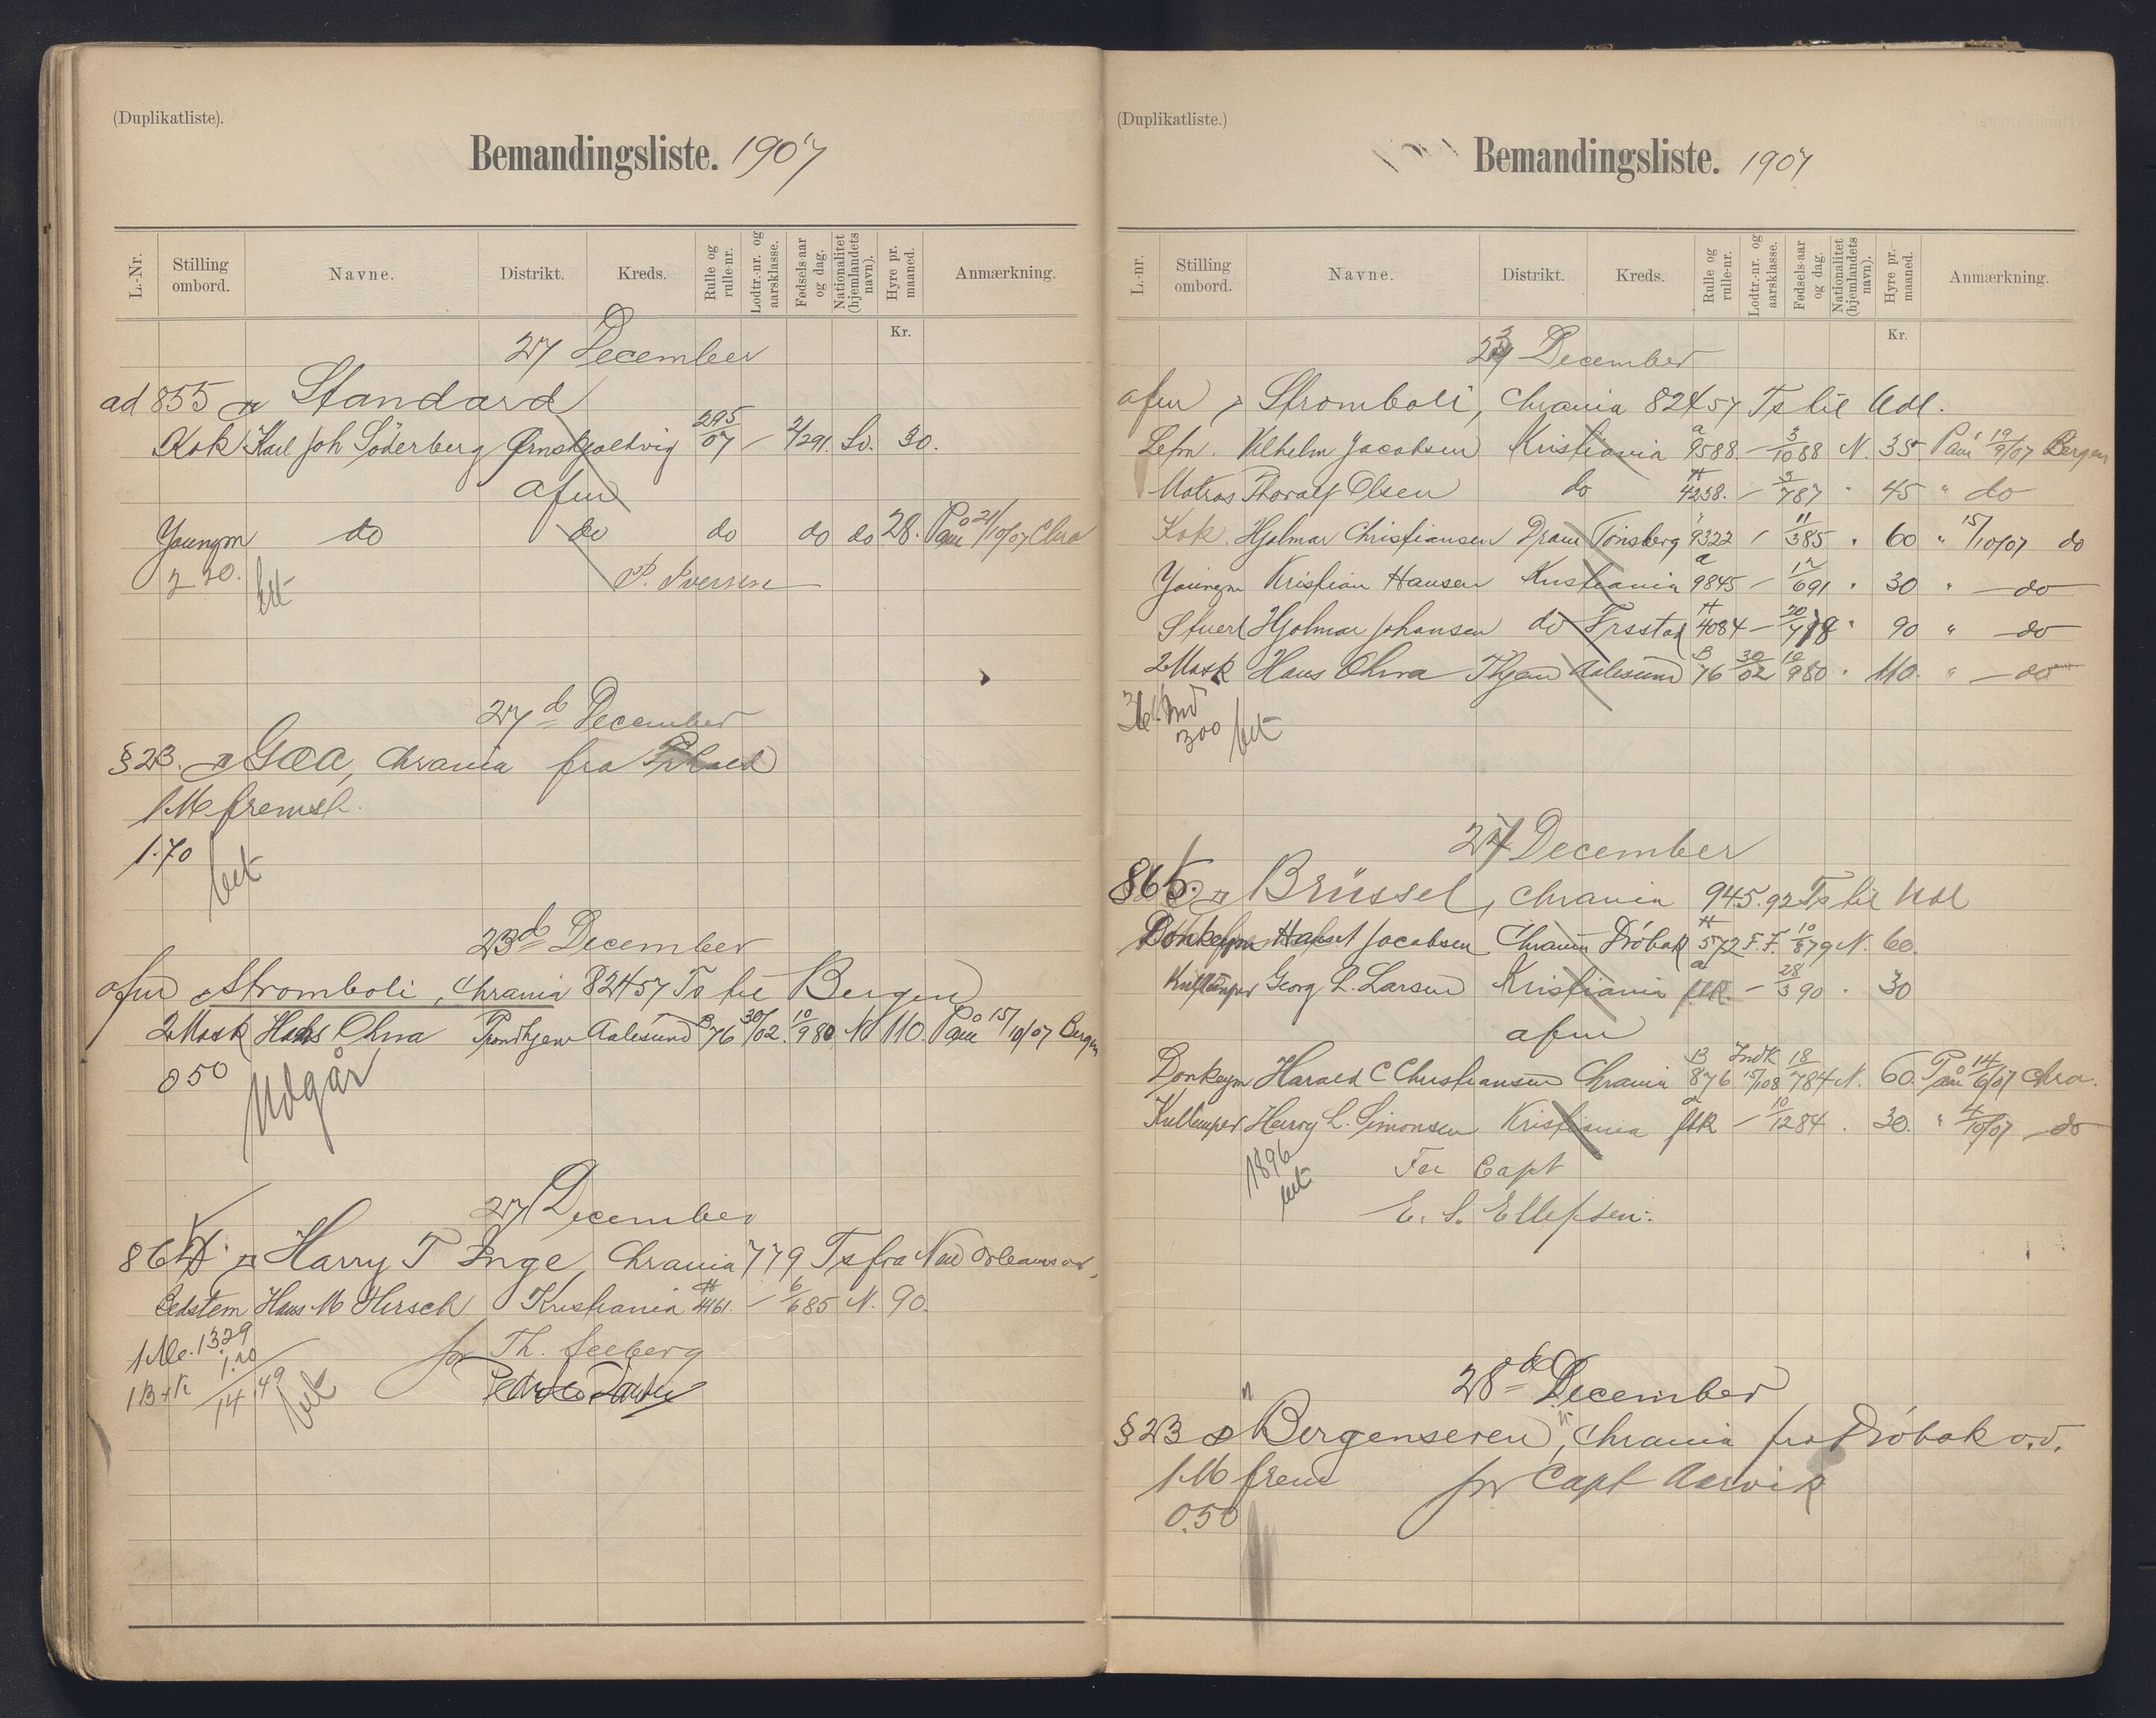 (Duplikatliste).
Bemandingsliste. 1907
L.-Nr. Stilling ombord. Navne. Distrikt. Kreds. Rulle og rulle-nr. Lodtr.-nr. og aarsklasse. Fødsels-aar og dag. Nationalitet (hjemlandets navn). Hyre pr. maaned. Anmærkning.
Kr.
27 December
ad 855 Standard
Kok Karl Joh Söderberg Ørnskjoldvig 295/07 — 2/291. Sv. 30.
afm
Youngm do do do do do 28. Paam 21/10/07 Chra
2 20. bet P. Iversen
27d December
§23. Gæa, Chrania fra
1 M fremst.
1.70
bet
23d December
afm Stromboli, Chrania 824 57 Ts til Bergen
2 Mask Hans Ohra Trondhjem Aalesund B 76 30/02 10/980 N 110. Paam 15/10/07 Bergen
0 50
Udgår
27 December
864. Harry T Inge, Chrania 779 Ts fra New Orleans
Bedstem Hans M Hirsch Kristiania H 4161. — 6/685 N. 90.
1 Me. 13.29 for Th. Seeberg
1.20
1 B+K 14.49 bet
(Duplikatliste.)
Bemandingsliste. 1907
L.-nr. Stilling ombord. Navne. Distrikt. Kreds. Rulle og rulle-nr. Lodtr.-nr. og aarsklasse. Fødsels-aar og dag. Nationalitet (hjemlandets navn). Hyre pr. maaned. Anmærkning.
Kr.
23 December
afm Stromboli, Chrania 824 57 Ts til Udl.
Letm. Vilhelm Jacobsen Kristiania a 9588 — 3/1088 N. 35 Paam 19/9/07 Bergen
Matros Thoralf Olsen do H 4238. — 3/787 " 45 " do
Kok. Hjalmar Christiansen Dram Tönsberg " 9322 / 11/385 " 60 " 15/10/07 do
Youngm Kristian Hansen Kristiania a 9845 — 12/691 " 30 " — do
Stuert Hjalmar Johansen do Frsstad H 4084 — 20/478 " 90 " — do
2 Mask Hans Ohra Thjem Aalesund B 76 30/02 10/980 " 110. " — do
300 bet
27 December
865. Brüssel, Chrania 945.92 Ts til Udl
Donkeym Jacobsen Chrania Dröbak H 572 F.F. 10/879 N. 60.
Kullemper Georg L. Larsen Kristiania a flR. — 28/3 90 " 30
afm
Donkeym Harald C Christiansen Chrania B 876 IndK 15/108 18/784 N. 60. Paam 14/6/07 Chra.
Kullemper Harry L. Simonsen Kristiania a flR — 10/1284 . 30. " 4/10/07 do
1896 For Capt
bet E. S. Ellefsen.
28de December
§23 "Bergenseren", Chrania fra Dröbak o.v.
1 M frem for Capt Aarvik
0.50